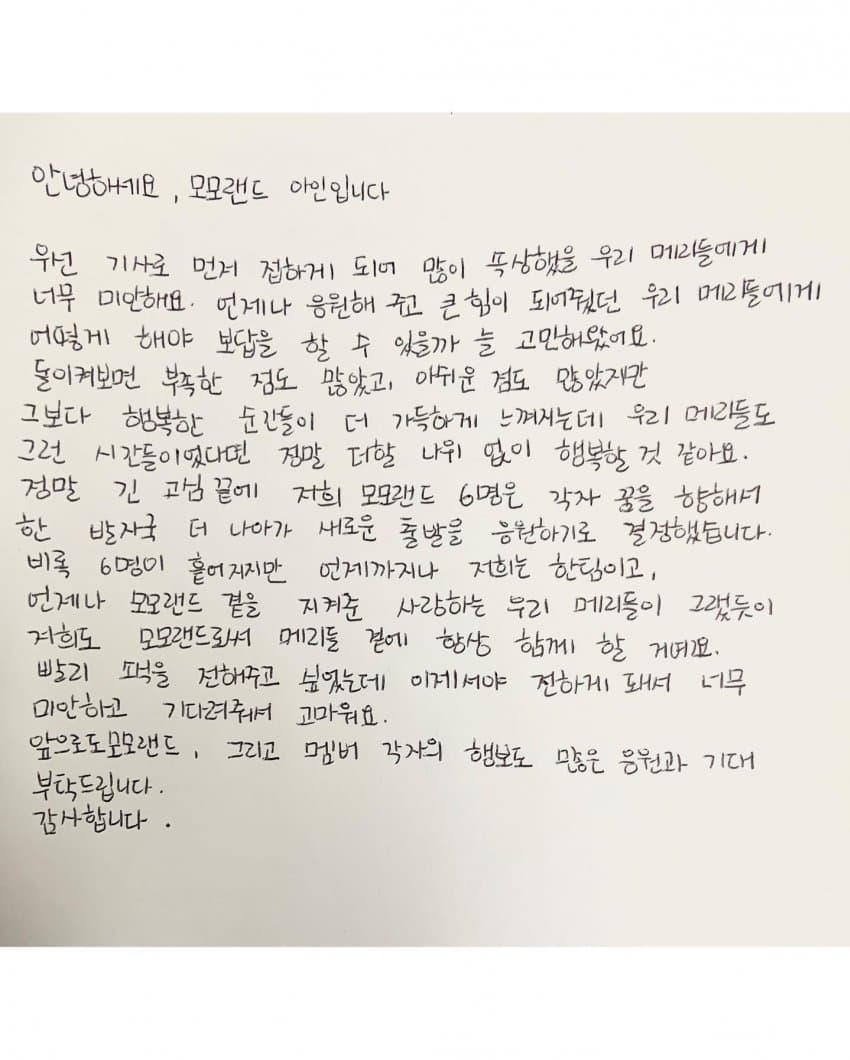 안녕하세요, 모모랜드 아인입니다
우선 기사로 먼저 접하게 되어 많이 속상했을 우리 메리들에게
너무 미안해요. 언제나 응원해 주고 큰 힘이 되어줬던 우리 메리들에게
어떻게 해야 보답을 할 수 있을까 늘 고민해왔어요.
돌이켜보면 부족한 점도 많았고, 아쉬운 점도 많았지만
그보다 행복한 순간들이 더 가득하게 느껴지는데 우리 메리들도
그런 시간들이었다면 정말 더할 나위 없이 행복할 것 같아요.
정말 긴 고심 끝에 저희 모모랜드 6명은 각자 꿈을 향해서
한 발자국 더 나아가 새로운 출발을 응원하기로 결정했습니다.
비록 6명이 흩어지지만 언제까지나 저희는 한팀이고,
언제나 모모랜드 곁을 지켜준 사랑하는 우리 메리들이 그랬듯이
저희도 모모랜드로써 메리들 곁에 항상 함께 할 거예요.
빨리 소식을 전해주고 싶었는데 이제서야 전하게 돼서 너무
미안하고 기다려줘서 고마워요.
앞으로도 모모랜드, 그리고 멤버 각자의 행보도 많은 응원과 기대
부탁드립니다.
감사합니다.